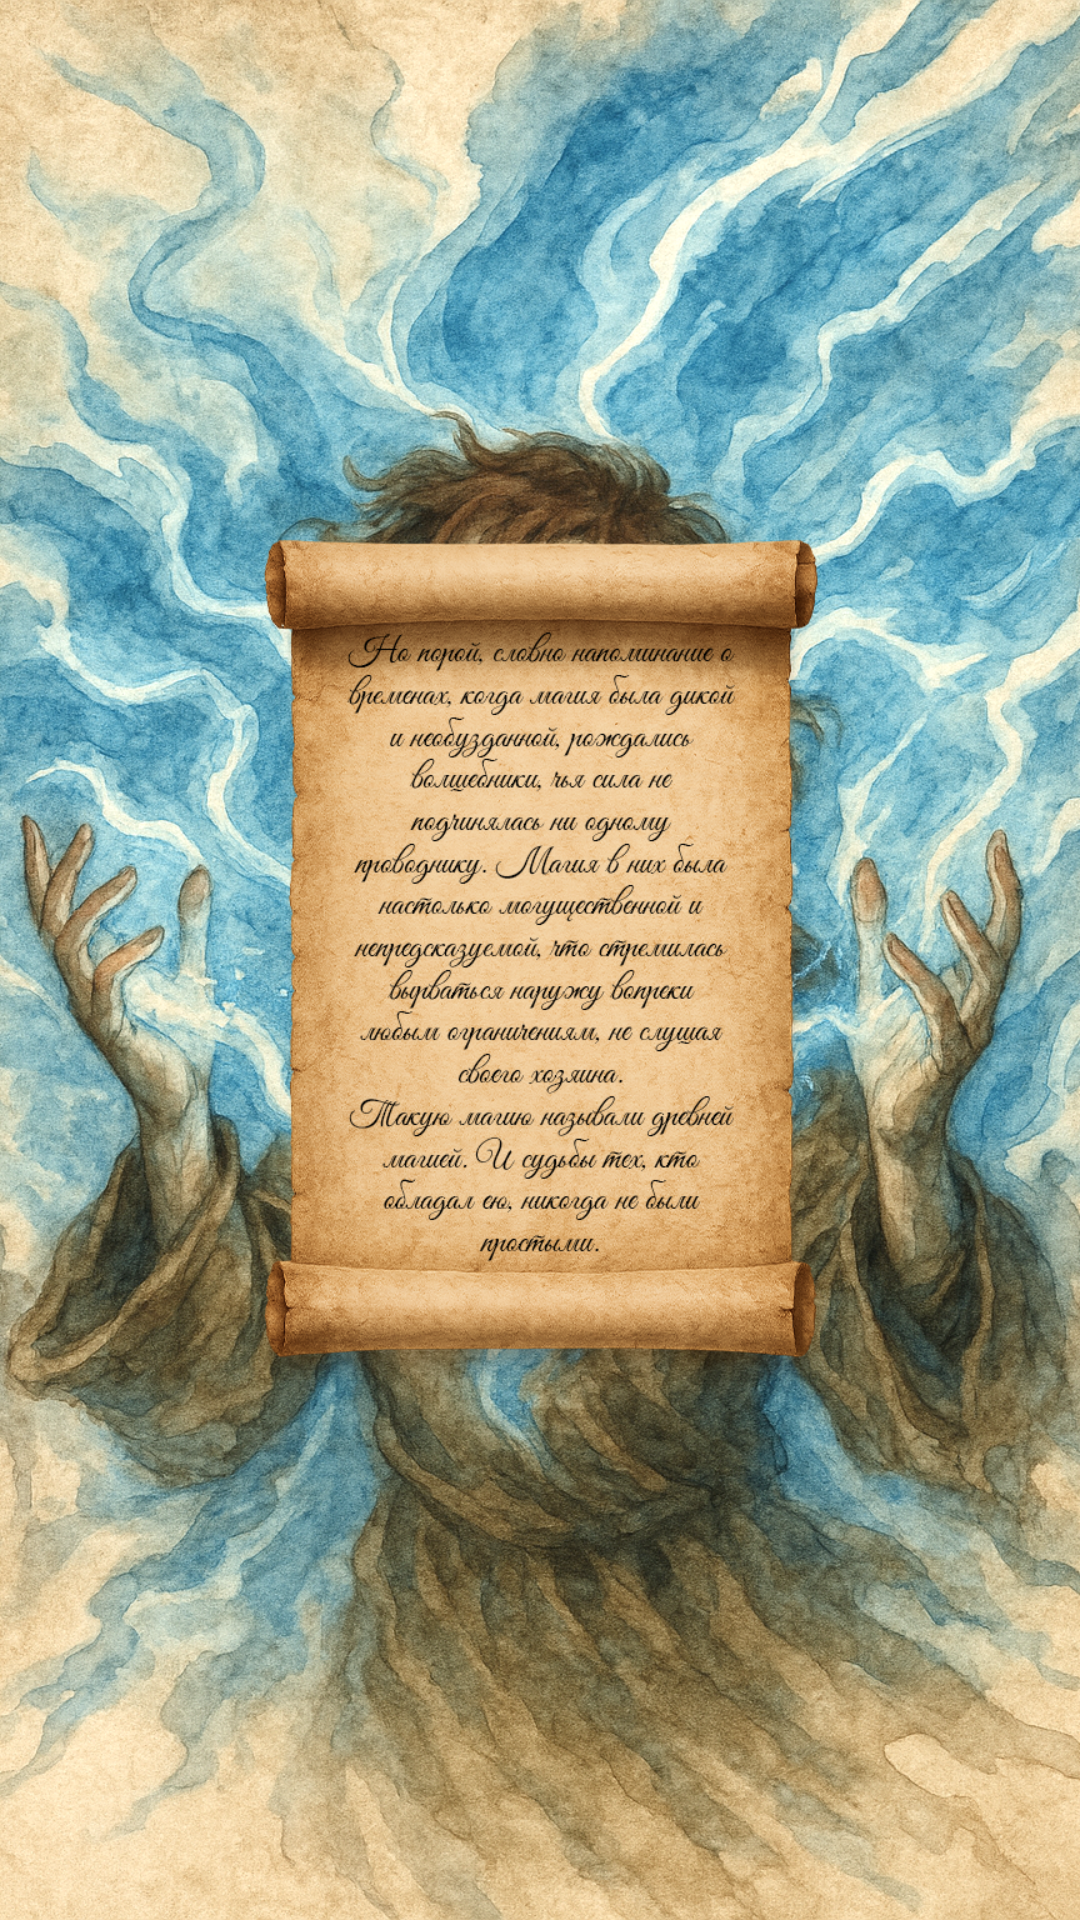 Но порой, словно напоминание о
временах, когда магия была дикой
и необузданной, рождались
волшебники, чья сила не
подчинялась ни одному
проводнику. Магия в них была
настолько могущественной и
непредсказуемой, что стремилась
вырваться наружу вопреки
любым ограничениям, не слушая
своего хозяина.
Такую магию называли древней
магией. И судьбы тех, кто
обладал ею, никогда не были
простыми.